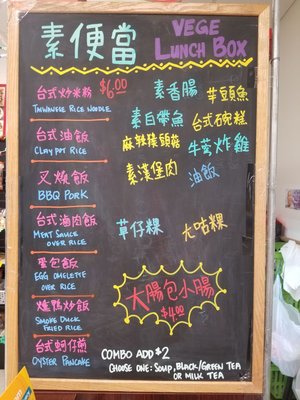 素便當
VEGE
LUNCH BOX
台式炒米粉 $6.00
TAIWANESE RICE NOODLE
台式油飯
CLAY POT RICE
叉燒飯
BBQ PORK
台式滷肉飯
MEAT SAUCE
OVER RICE
蛋包飯
EGG OMELETTE
OVER RICE
燻鴨炒飯
SMOKE DUCK
FRIED RICE
台式蚵仔煎
OYSTER PANCAKE
素香腸
芋頭魚
素白帶魚
台式碗粿
麻辣猴頭菇
牛蒡炸雞
素漢堡肉
油飯
草仔粿
大腸包小腸
$4.00
COMBO ADD $2
CHOOSE ONE: SOUP, BLACK/GREEN TEA
OR MILK TEA